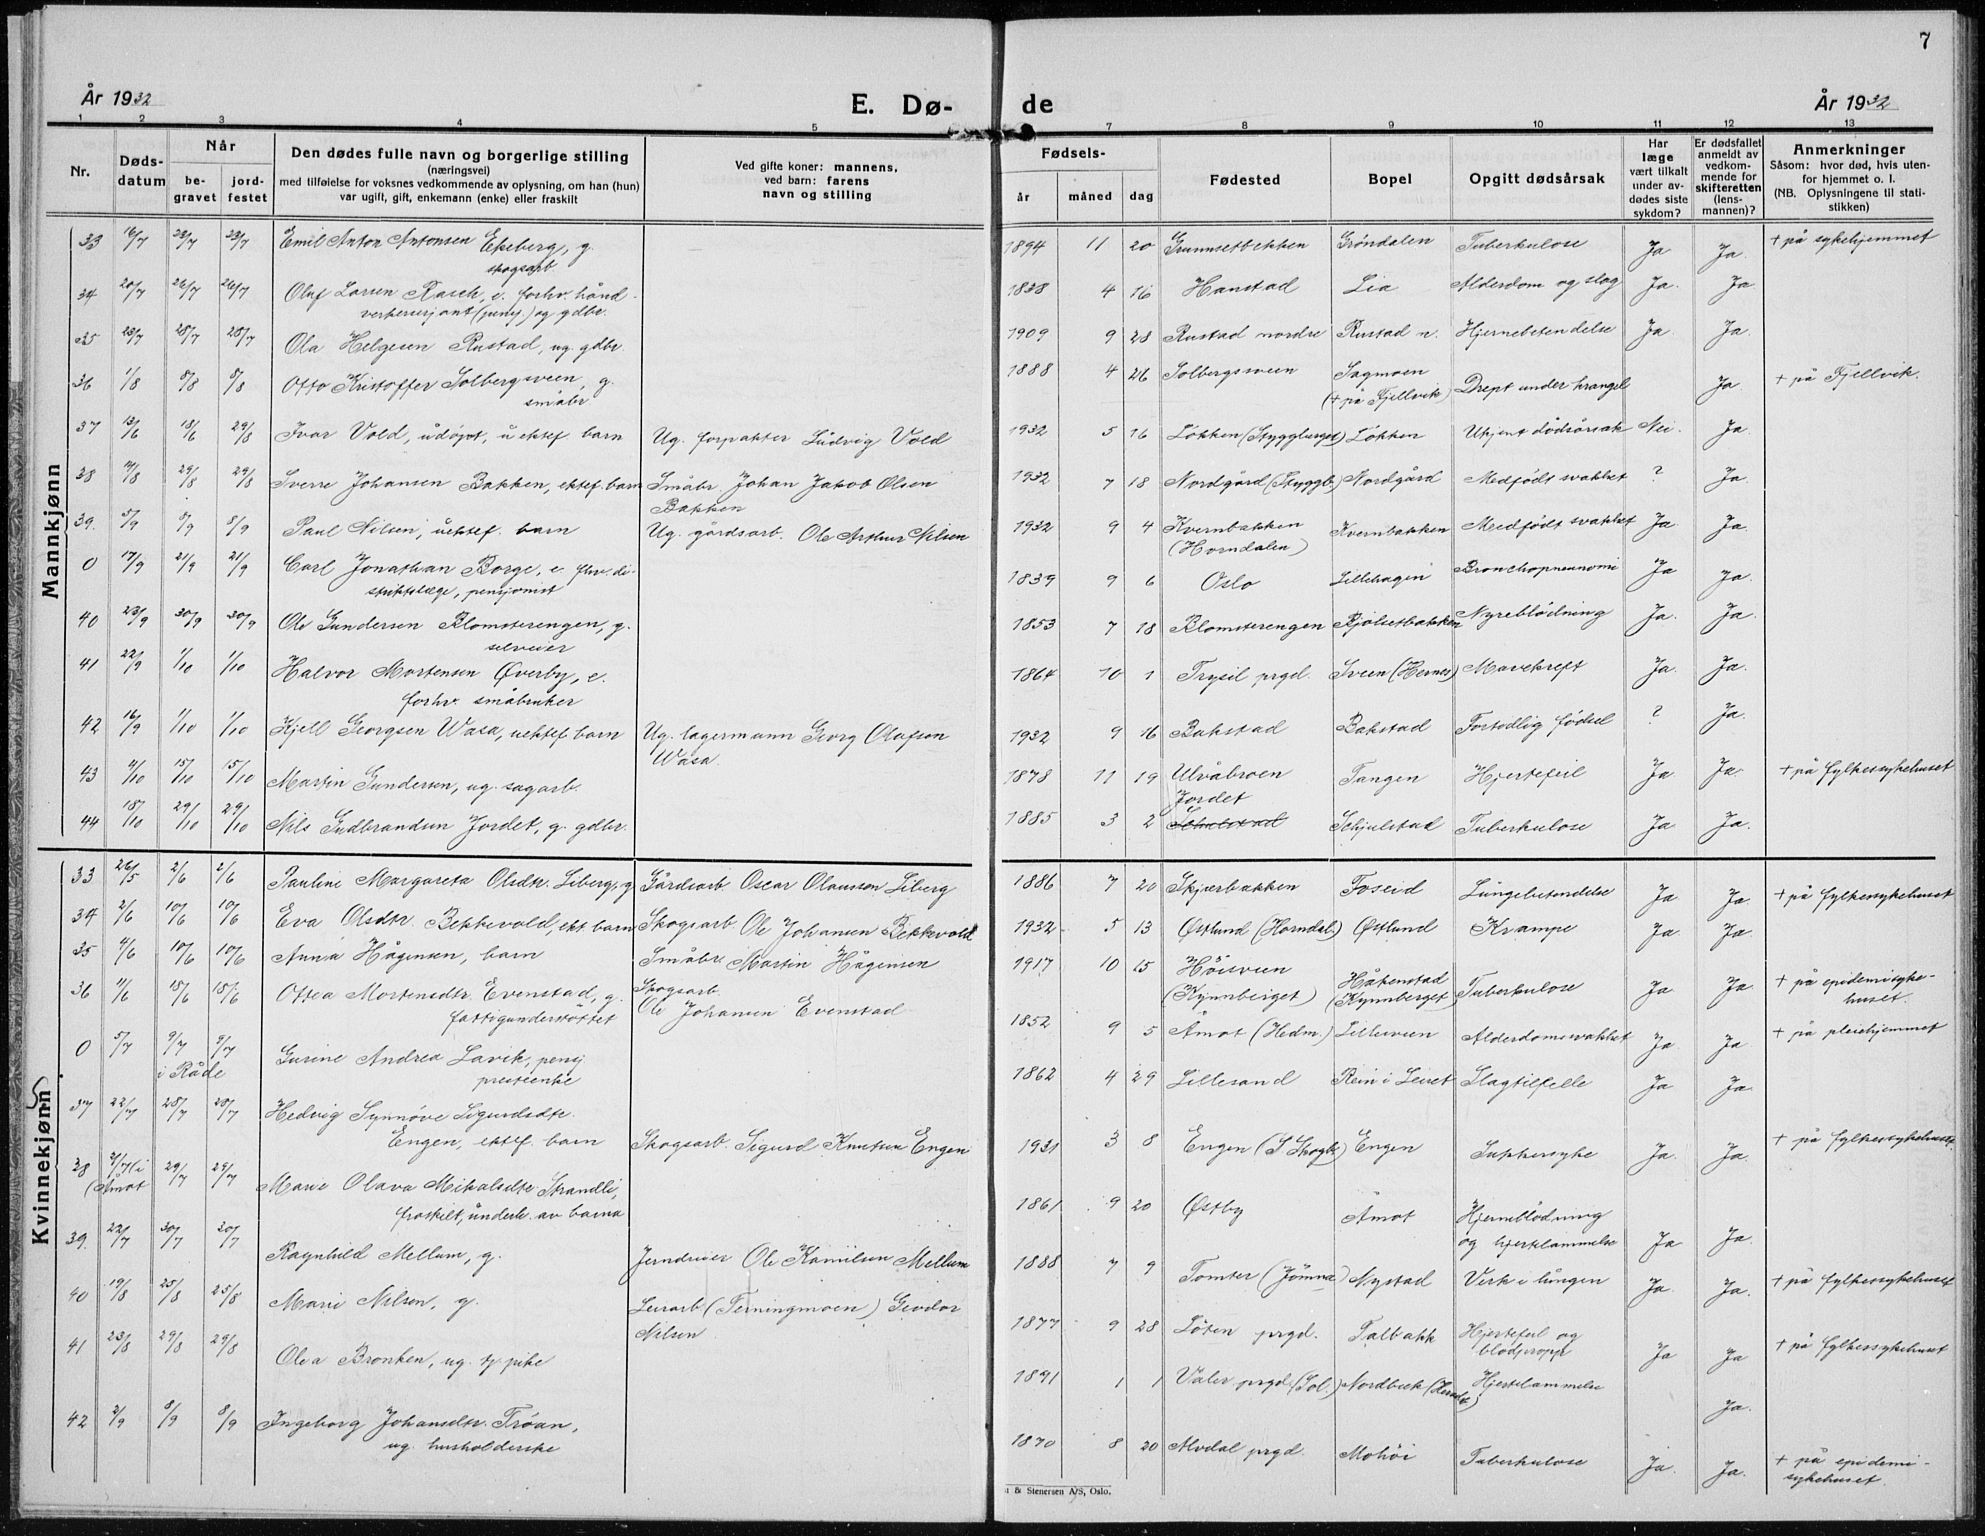 7
År 1932
E. Dø-
de
År 1932
1 2 3 4 5 7 8 9 10 11 12 13
Nr.
Døds-
datum
Når
be-
gravet
jord-
festet
Den dødes fulle navn og borgerlige stilling
(næringsvei)
med tilføielse for voksnes vedkommende av oplysning, om han (hun)
var ugift, gift, enkemann (enke) eller fraskilt
Ved gifte koner: mannens,
ved barn: farens
navn og stilling
Fødsels-
år måned dag
Fødested
Bopel
Opgitt dødsårsak
Har
læge
vært tilkalt
under av-
dødes siste
sykdom?
Er dødsfallet
anmeldt av
vedkom-
mende for
skifteretten
(lens-
mannen)?
Anmerkninger
Såsom: hvor død, hvis uten-
for hjemmet o. l.
(NB. Oplysningene til stati-
stikken)
Mannkjønn
33 16/7 23/7 23/7 Emil Anton Antonsen Ekeberg, g. 1894 11 20 Grunnsetbekken Grøndalen Tuberkulose Ja Ja. + på sykehjemmet
skogsarb
34 20/7 26/7 26/7 Oluf Larsen Rasch, e. forhv. hånd- 1838 4 16 Hanstad Lia Alderdom og slag Ja. Ja
verkersersjant (pensj.) og gdbr.
35 23/7 28/7 28/7 Ola Helgesen Rustad, ug. gdbr. 1909 9 28 Rustad nordre Rustad n. Hjernebetendelse Ja. Ja.
36 1/8 8/8 8/8 Otto Kristoffer Solbergsveen, g. 1888 4 26 Solbergsveen Sagmoen Drept under krangel Ja. + på Fjellvik.
småbr (+ på Fjellvik)
37 13/6 18/6 29/8 Ivar Vold, udøpt, u. ektef. barn Ug. forpakter Ludvig Vold 1932 5 16 Løkken (Styggberget) Løkken Ukjent dødsårsak Nei. Ja
38 29/8 29/8 Sverre Johansen Bakken, ektef. barn Småbr. Johan Jakob Olsen 1932 7 18 Nordgård (Styggb.) Nordgård Medfødt svakhet ? Ja.
Bakken
39. 5/9 8/9 8/9 Paul Nilsen, uektef. barn Ug. gårdsarb. Ole Arthur Nilsen 1932 9 4 Kvernbakken Kvernbakken Medfødt svakhet Ja Ja.
(Horndalen)
0 17/9 21/9 21/9 Carl Jonathan Borge, e. fhv. di- 1839 9 6 Oslo Lillehagen Bronchopneunomi Ja Ja.
striktslæge, pensjonist
40 23/9 30/9 30/9 Ole Gundersen Blomsterengen, g. 1853 7 18 Blomsterengen Kjølsetbakken Nyreblødning Ja. Ja.
selveier
41 22/9 1/10 1/10 Halvor Mortensen Øverby, e. 1864 10 1 Trysil prgd. Sveen (Hernes) Mavekreft Ja. Ja.
forhv. småbruker
42 16/9 1/10 1/10 Kjell Georgsen Wasa, uektef. barn Ug. lagermann Georg Olafsen 1932 9 16 Bakstad Bakstad Fortidlig fødsel ? Ja.
Wasa.
43 4/10 15/10 15/10 Martin Gundersen, ug. sagarb. 1878 11 19 Ulvåbroen Tangen Hjertefeil Ja. Ja. + på fylkessykehuset
Jordet
44 18/10 29/10 29/10 Nils Gudbrandsen Jordet, g. gdbr. 1885 3 2 Schulstad Schjulstad Tuberkulose Ja Ja.
Kvinnekjønn
33 26/5 2/6 2/6 Pauline Margareta Olsdtr. Liberg, g Gårdsarb Oscar Olaussen Liberg 1886 7 20 Skjærbakken Foseid Lungebetendelse Ja Ja. + på fylkessykehuset
34 2/6 10/6 10/6 Eva Olsdtr. Bekkevold, ekt barn Skogsarb. Ole Johansen Bekkevold 1932 5 13 Østlund (Horndal.) Østlund Krampe Ja Ja.
35 4/6 10/6 10/6 Anna Hågensen, barn Småbr. Martin Hågensen 1917 10 15 Høisveen Håkenstad Tuberkulose Ja Ja. + på epidemisyke-
(Kynnberget) (Kynnberget) huset.
36 11/6 15/6 15/6 Ottea Mortensdtr. Evenstad, g. Skogsarb. 1852 9 5 Åmot (Hedm.) Lilleveen Alderdomssvakhet Ja Ja. + på pleiehjemmet
fattigunderstøttet Ole Johansen Evenstad
0 5/7 9/7 9/7 Gurine Andrea Lavik, pensj. 1862 4 29 Lillesand Rein i Leiret Slagtilfelle Ja Ja.
i Råde presteenke
37 22/7 28/7 28/7 Hedvig Synnøve Sigurdsdtr.
Engen, ektef. barn Skogsarb. Sigurd Knutsen Engen 1931 3 8 Engen (S Skogb.) Engen Sukkersyke Ja. Ja. + på fylkessykehuset
38 29/7 29/7 Marie Olava Mikalsdtr. Strandli, 1861 9 20 Østby Åmot Hjerneblødning
(Åmot fraskilt, underh. av barna og hjertelammelse Ja Ja.
39. 22/7 30/7 30/7 Ragnhild Mellum, g. Jerndreier Ole Kamilsen Mellum 1888 7 9 Tomter (Jømna) Nystad Verk i lungen Ja. Ja. + på fylkessykehuset
40 19/8 25/8 25/8 Marie Nilsen, g. Leirarb. (Terningmoen) Geodor 1877 9 28 Løten prgd. Talbakk Hjertefeil og Ja Ja + på fylkessykehuset
Nilsen blodpropp
41 23/8 29/8 29/8 Olea Bronken, ug. tj. pike 1891 1 1 Våler prgd (Sol.) Nordbæk Hjertelammelse Ja.
42 2/9 8/9 8/9 Ingeborg Johansdtr. Trøan, 1870 8 20 Alvdal prgd. Mohøi Tuberkulose Ja. Ja. + på epidemi-
ug. husholderske sykehuset.
& Stenersen A/S, Oslo.